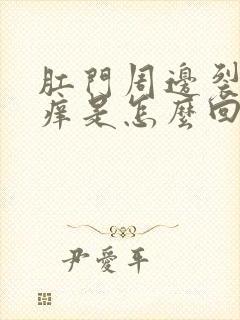 肛門周邊裂
痒是怎麼回
尹愛平